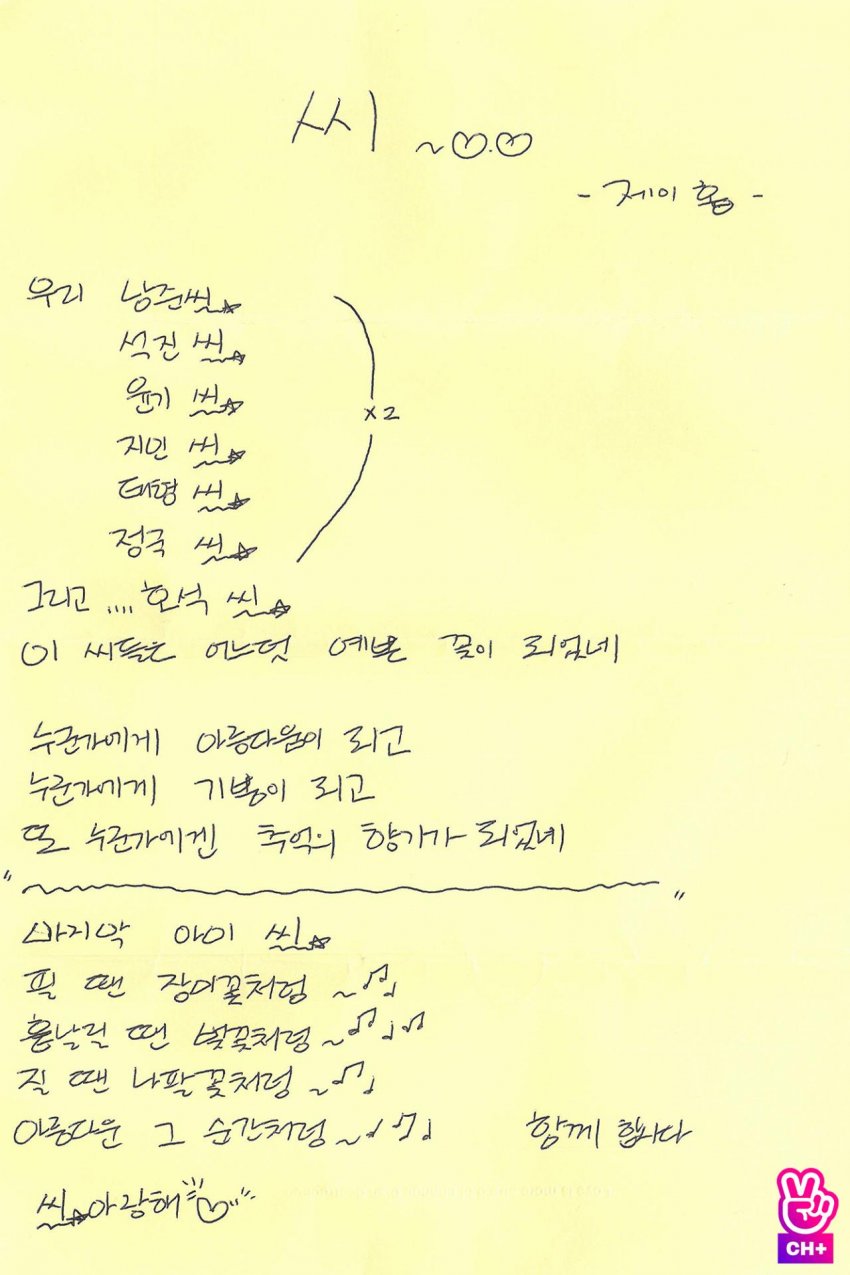 씨 ~♡.♡
- 제이홉 -
우리 남준씨☆
석진 씨☆
윤기 씨☆
지민 씨☆
태형 씨☆
정국 씨☆
x2
그리고 .... 호석 씨☆
이 씨들은 어느덧 예쁜 꽃이 되었네
누군가에게 아름다움이 되고
누군가에게 기쁨이 되고
또 누군가에겐 추억의 향기가 되었네
" "
마지막 아미 씨☆
필 땐 장미꽃처럼 ~♫♩
흩날릴 땐 벚꽃처럼~♫♩♫
질 땐 나팔꽃처럼 ~♫♩
아름다운 그 순간처럼~♩♫♩ 함께 합시다
씨☆아랑해♡
CH+